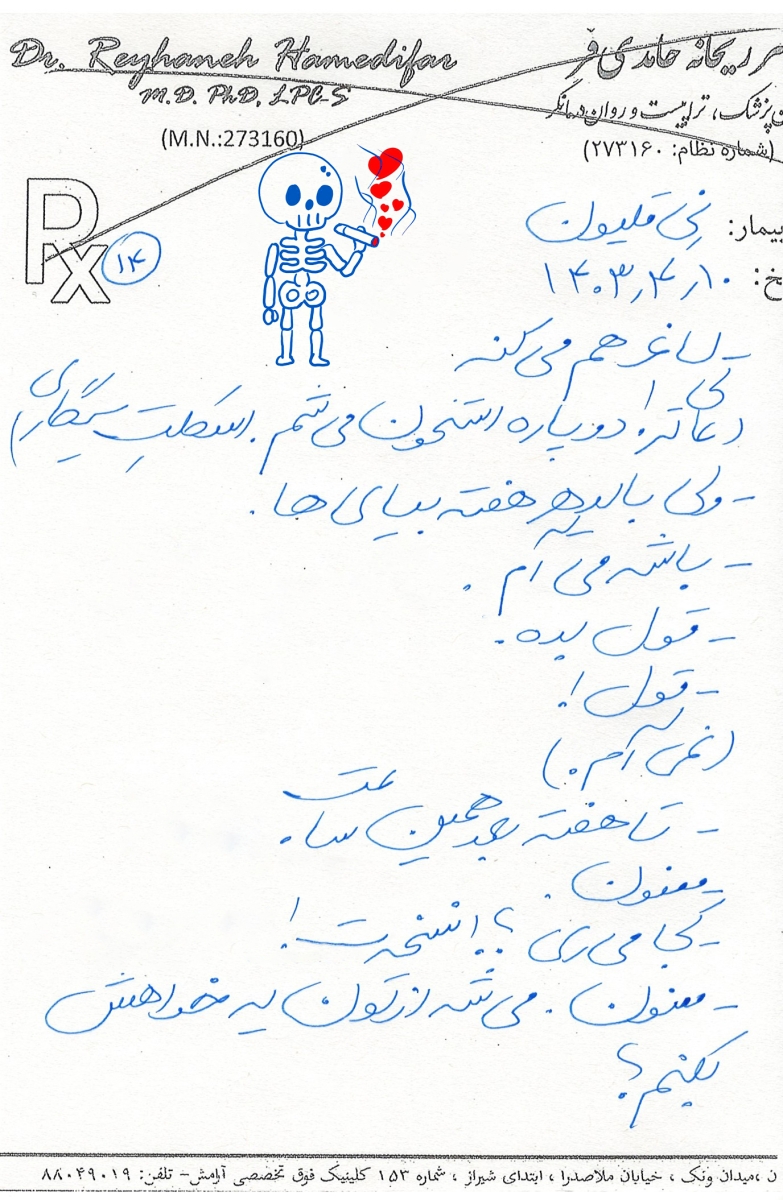 Dr. Reyhaneh Hamedifar
M.D. PhD, LPC-S
(M.N.:273160)
ر ریحانه حامدی فر
ن پزشک، تراپیست و روان درمانگر
(شماره نظام: ۲۷۳۱۶۰)
Rx
۱۴
یمار: نی قلیون
خ: ۱۴۰۳٫۴٫۱۰
- لاغر هم می کنه
عالی! دوباره استخون می شم. اسکلتِ سیگاری)
- ولی باید هر هفته بیای ها.
- باشه می آم.
- قول بده.
- قول!
(نمی آم.)
- تا هفته بعد همین ساعت.
- ممنون.
- کجا می ری؟! نسخه ت!
- ممنون. می شه ازتون یه خواهش
بکنم؟
ن ،میدان ونک ، خیابان ملاصدرا ، ابتدای شیراز ، شماره ۱۵۳ کلینیک فوق تخصصی آرامش- تلفن: ۸۸۰۴۹۰۱۹